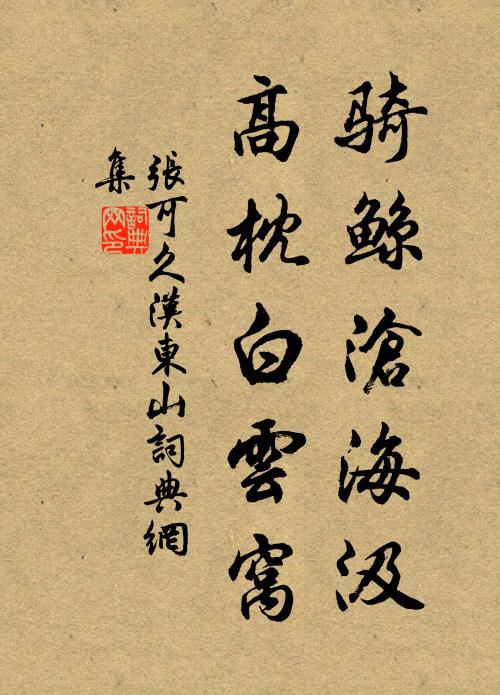 騎鯨滄海波
高枕白雲窩
張可久漢東山詞典網
集
詞典
网印